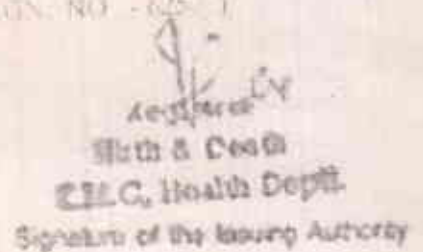 NO
Registrar
Birth & Death
C, Health Deptt.
Signature of the Issuing Authority